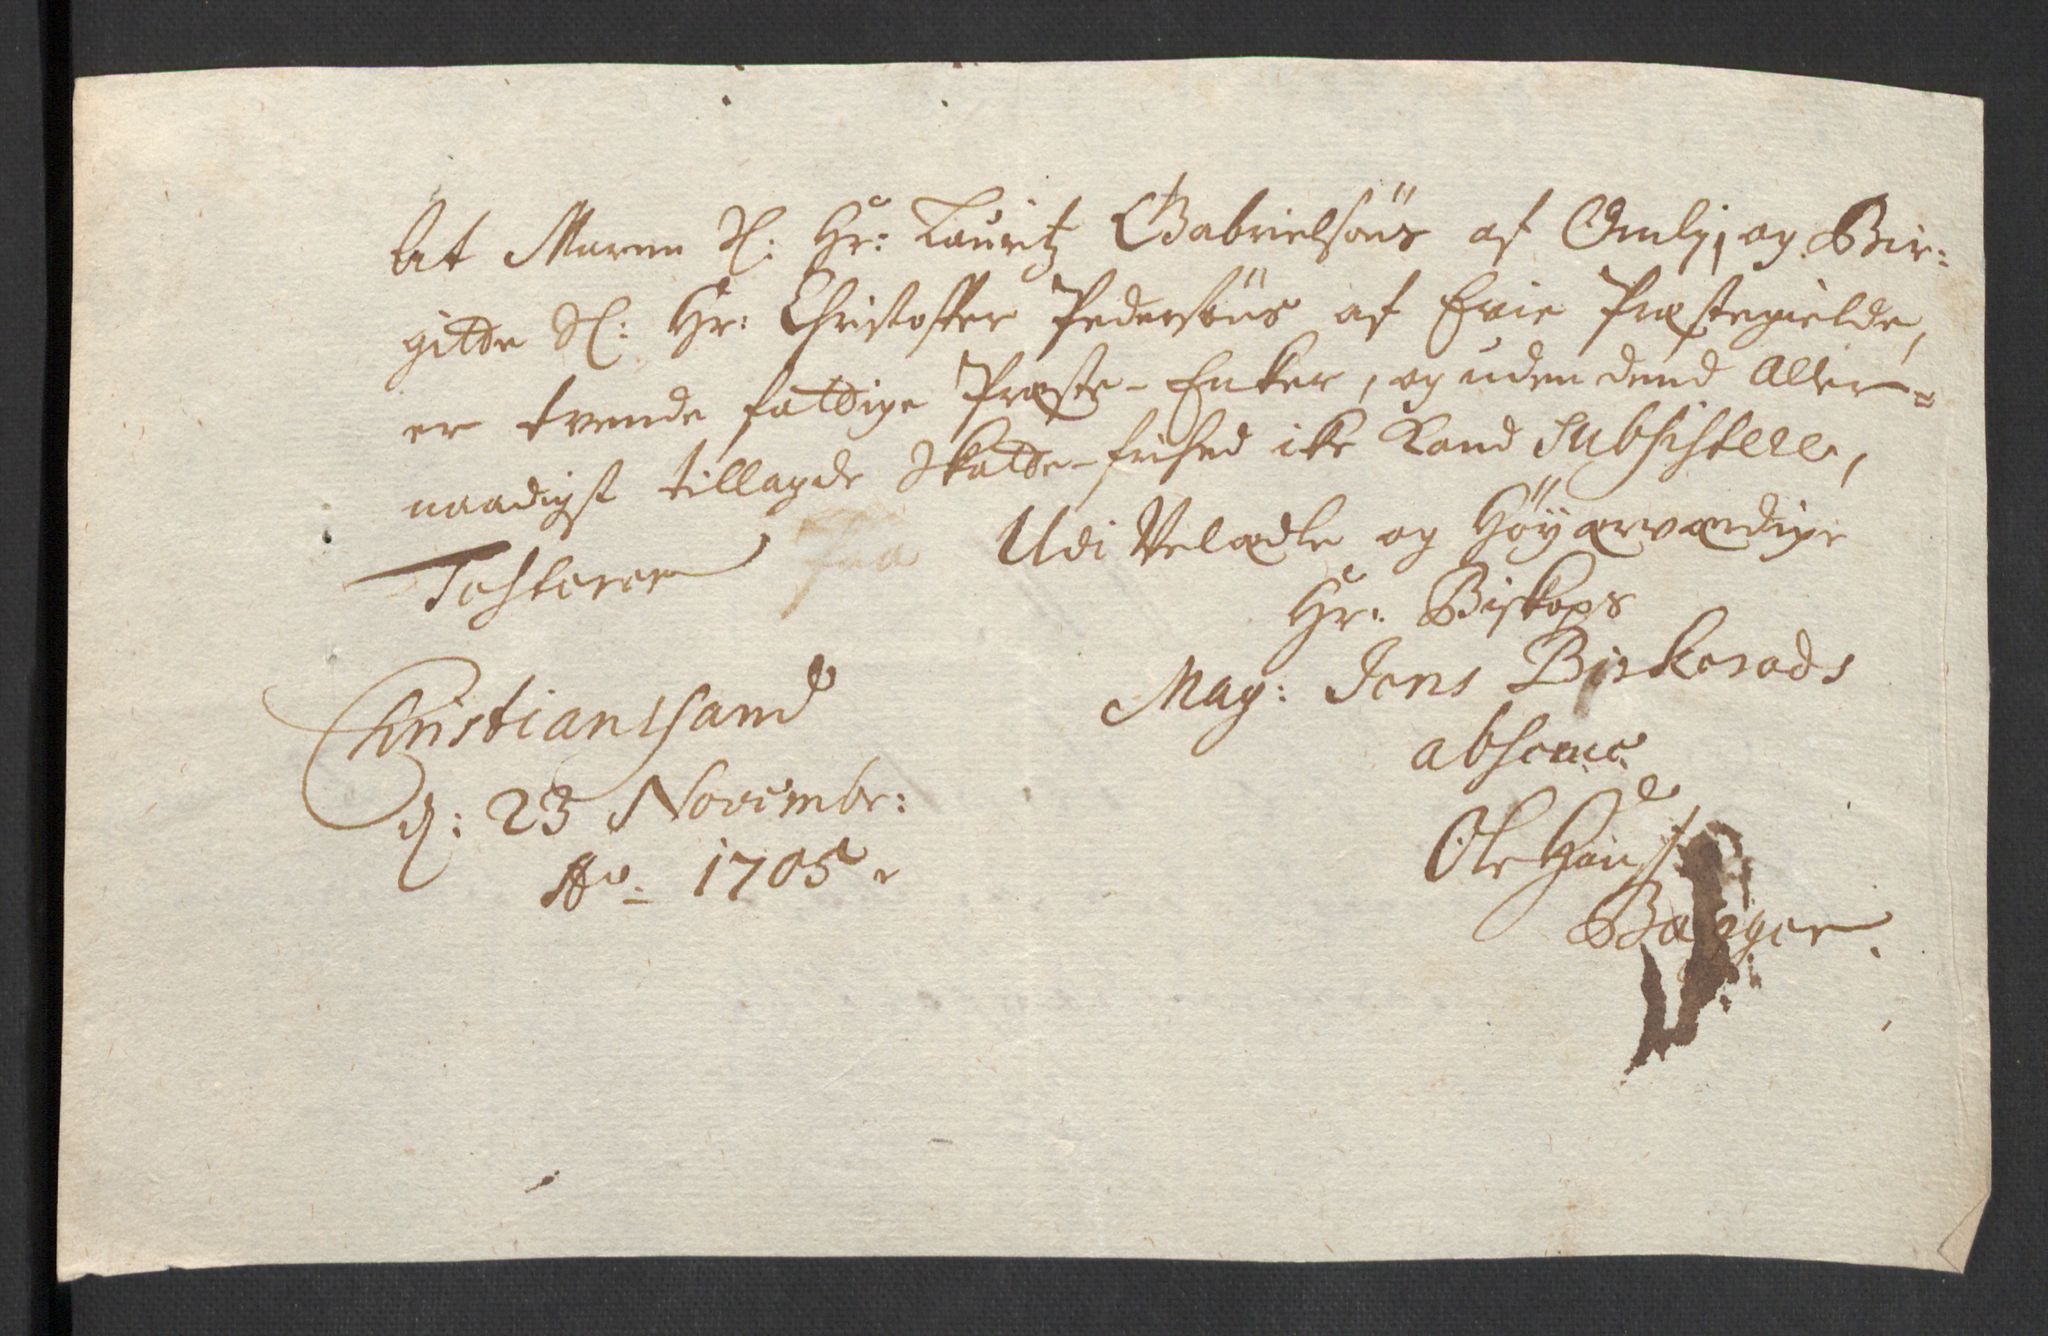 At Maren Sl: Hr: Lauritz Gabrielsöns af Omlj, og Bir-
gitte Sl: Hr: Christoffer Pedersöns af Evie Præstegielde,
er tvende fattige Præste-Enker, og uden dend Aller-
naadigst tillagde Skatte-frihed ike Kand Subsistere,
Testerer
Udi Velædle og Höÿærværdige
Hr: Biskops
Mag: Jens Birkerods
absence
Christiansand
d: 23 Novembr:
Ao. 1705.
Ole